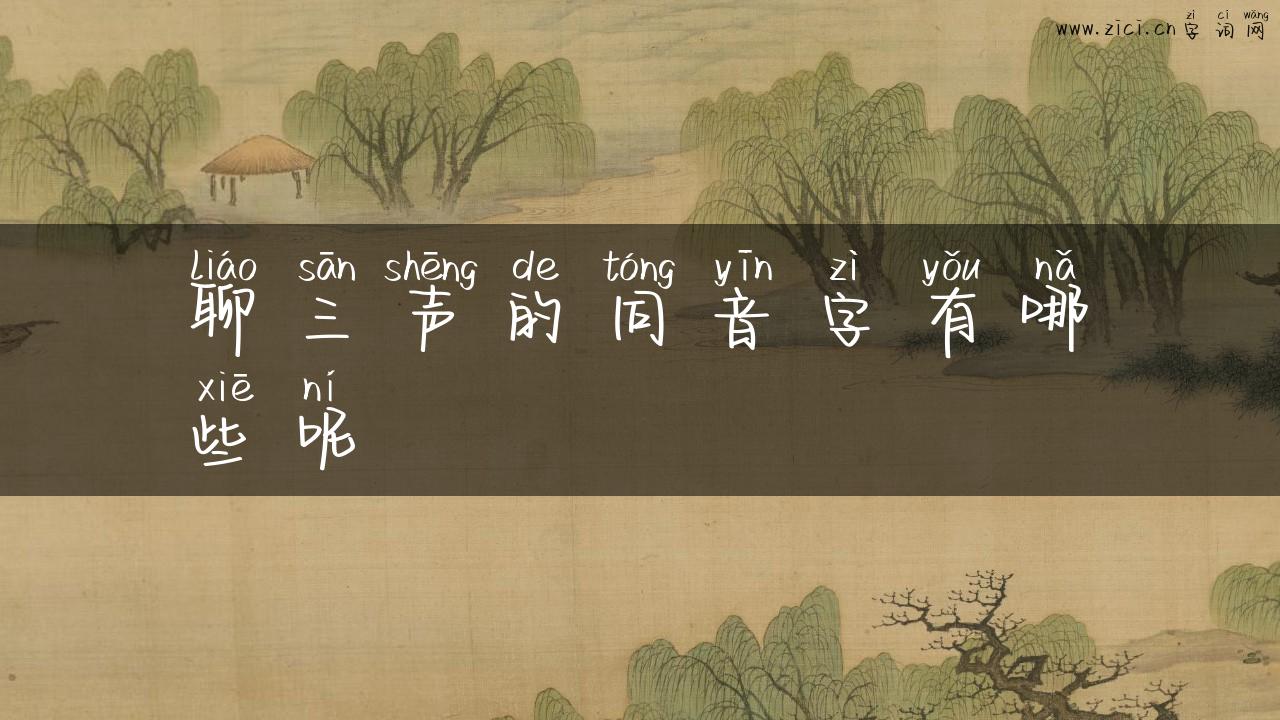 zì cí wǎng
www.zici.cn 字词网
liáo sān shēng de tóng yīn zì yǒu nǎ
聊三声的同音字有哪
xiē ní
些呢